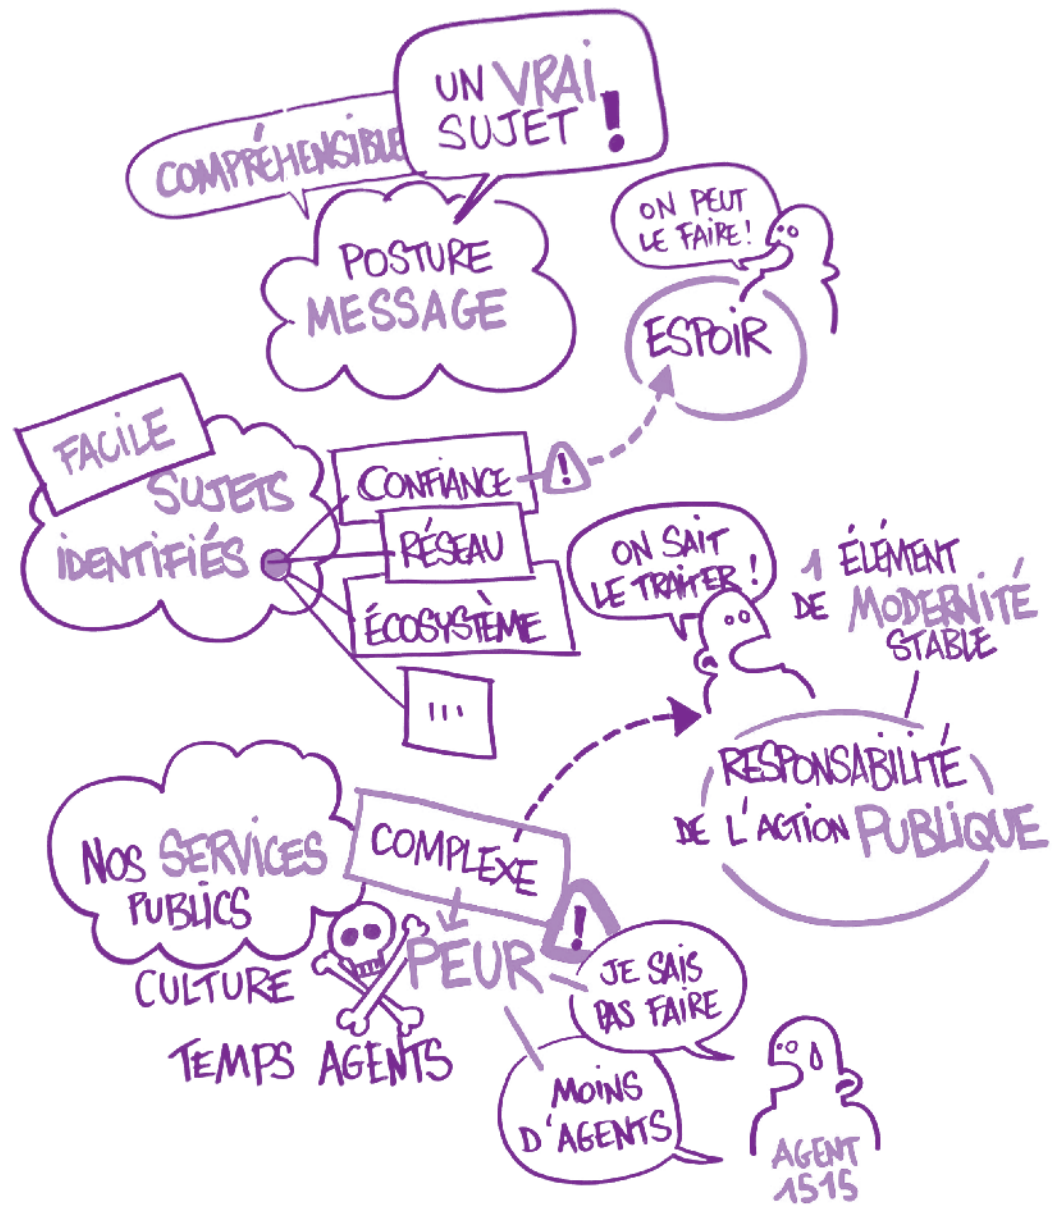 UN VRAI
SUJET !
COMPRÉHENSIBLE
POSTURE
MESSAGE
ON PEUT
LE FAIRE !
ESPOIR
FACILE
SUJETS
IDENTIFIÉS
CONFIANCE
!
RÉSEAU
ÉCOSYSTÈME
...
ON SAIT
LE TRAITER !
1 ÉLÉMENT
DE MODERNITÉ
STABLE
RESPONSABILITÉ
DE L'ACTION PUBLIQUE
NOS SERVICES
PUBLICS
COMPLEXE
!
PEUR
CULTURE
TEMPS AGENTS
JE SAIS
PAS FAIRE
MOINS
D'AGENTS
AGENT
1515